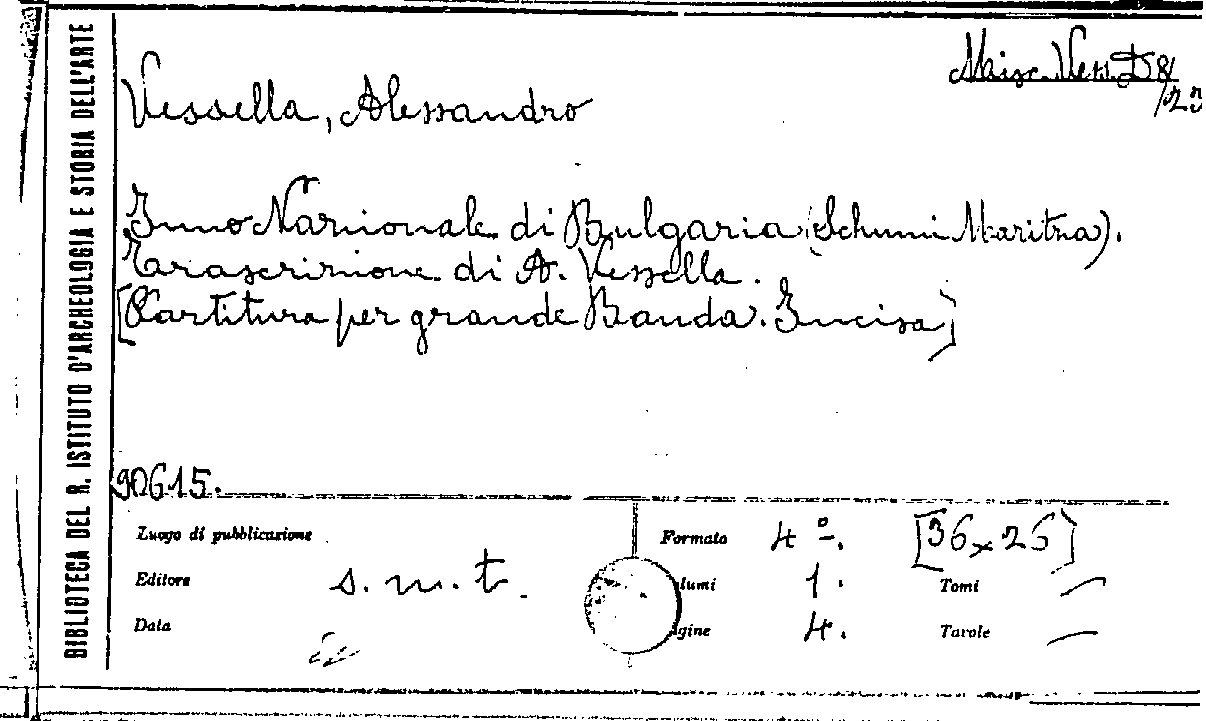 BIBLIOTECA DEL R. ISTITUTO D'ARCHEOLOGIA E STORIA DELL'ARTE
Misc. Vess. D 8/
/23
Vessella, Alessandro
Inno Nazionale di Bulgaria (Schumi Maritza).
Trascrizione di A. Vessella.
[Partitura per grande Banda. Incisa]
90615.
Luogo di pubblicazione
Formato 4º. [36x26]
Editore s. n. t.
lumi 1. Tomi —
Data
gine 4. Tavole —